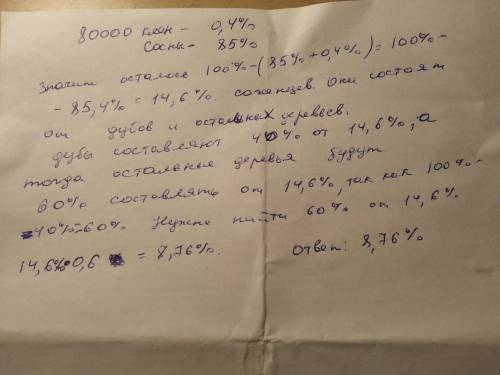 80000 клён - 0,4%
Сосны - 85%
Значит осталось 100% - (85% + 0,4%) = 100% -
- 85,4% = 14,6% саженцев. Они состоят
от дубов и остальных деревьев.
дубы составляют 40% от 14,6%, а
тогда остальные деревья будут
60% составлять от 14,6%, так как 100% -
- 40% = 60% Нужно найти 60% от 14,6%
14,6% • 0,6 = 8,76%. Ответ: 8,76%